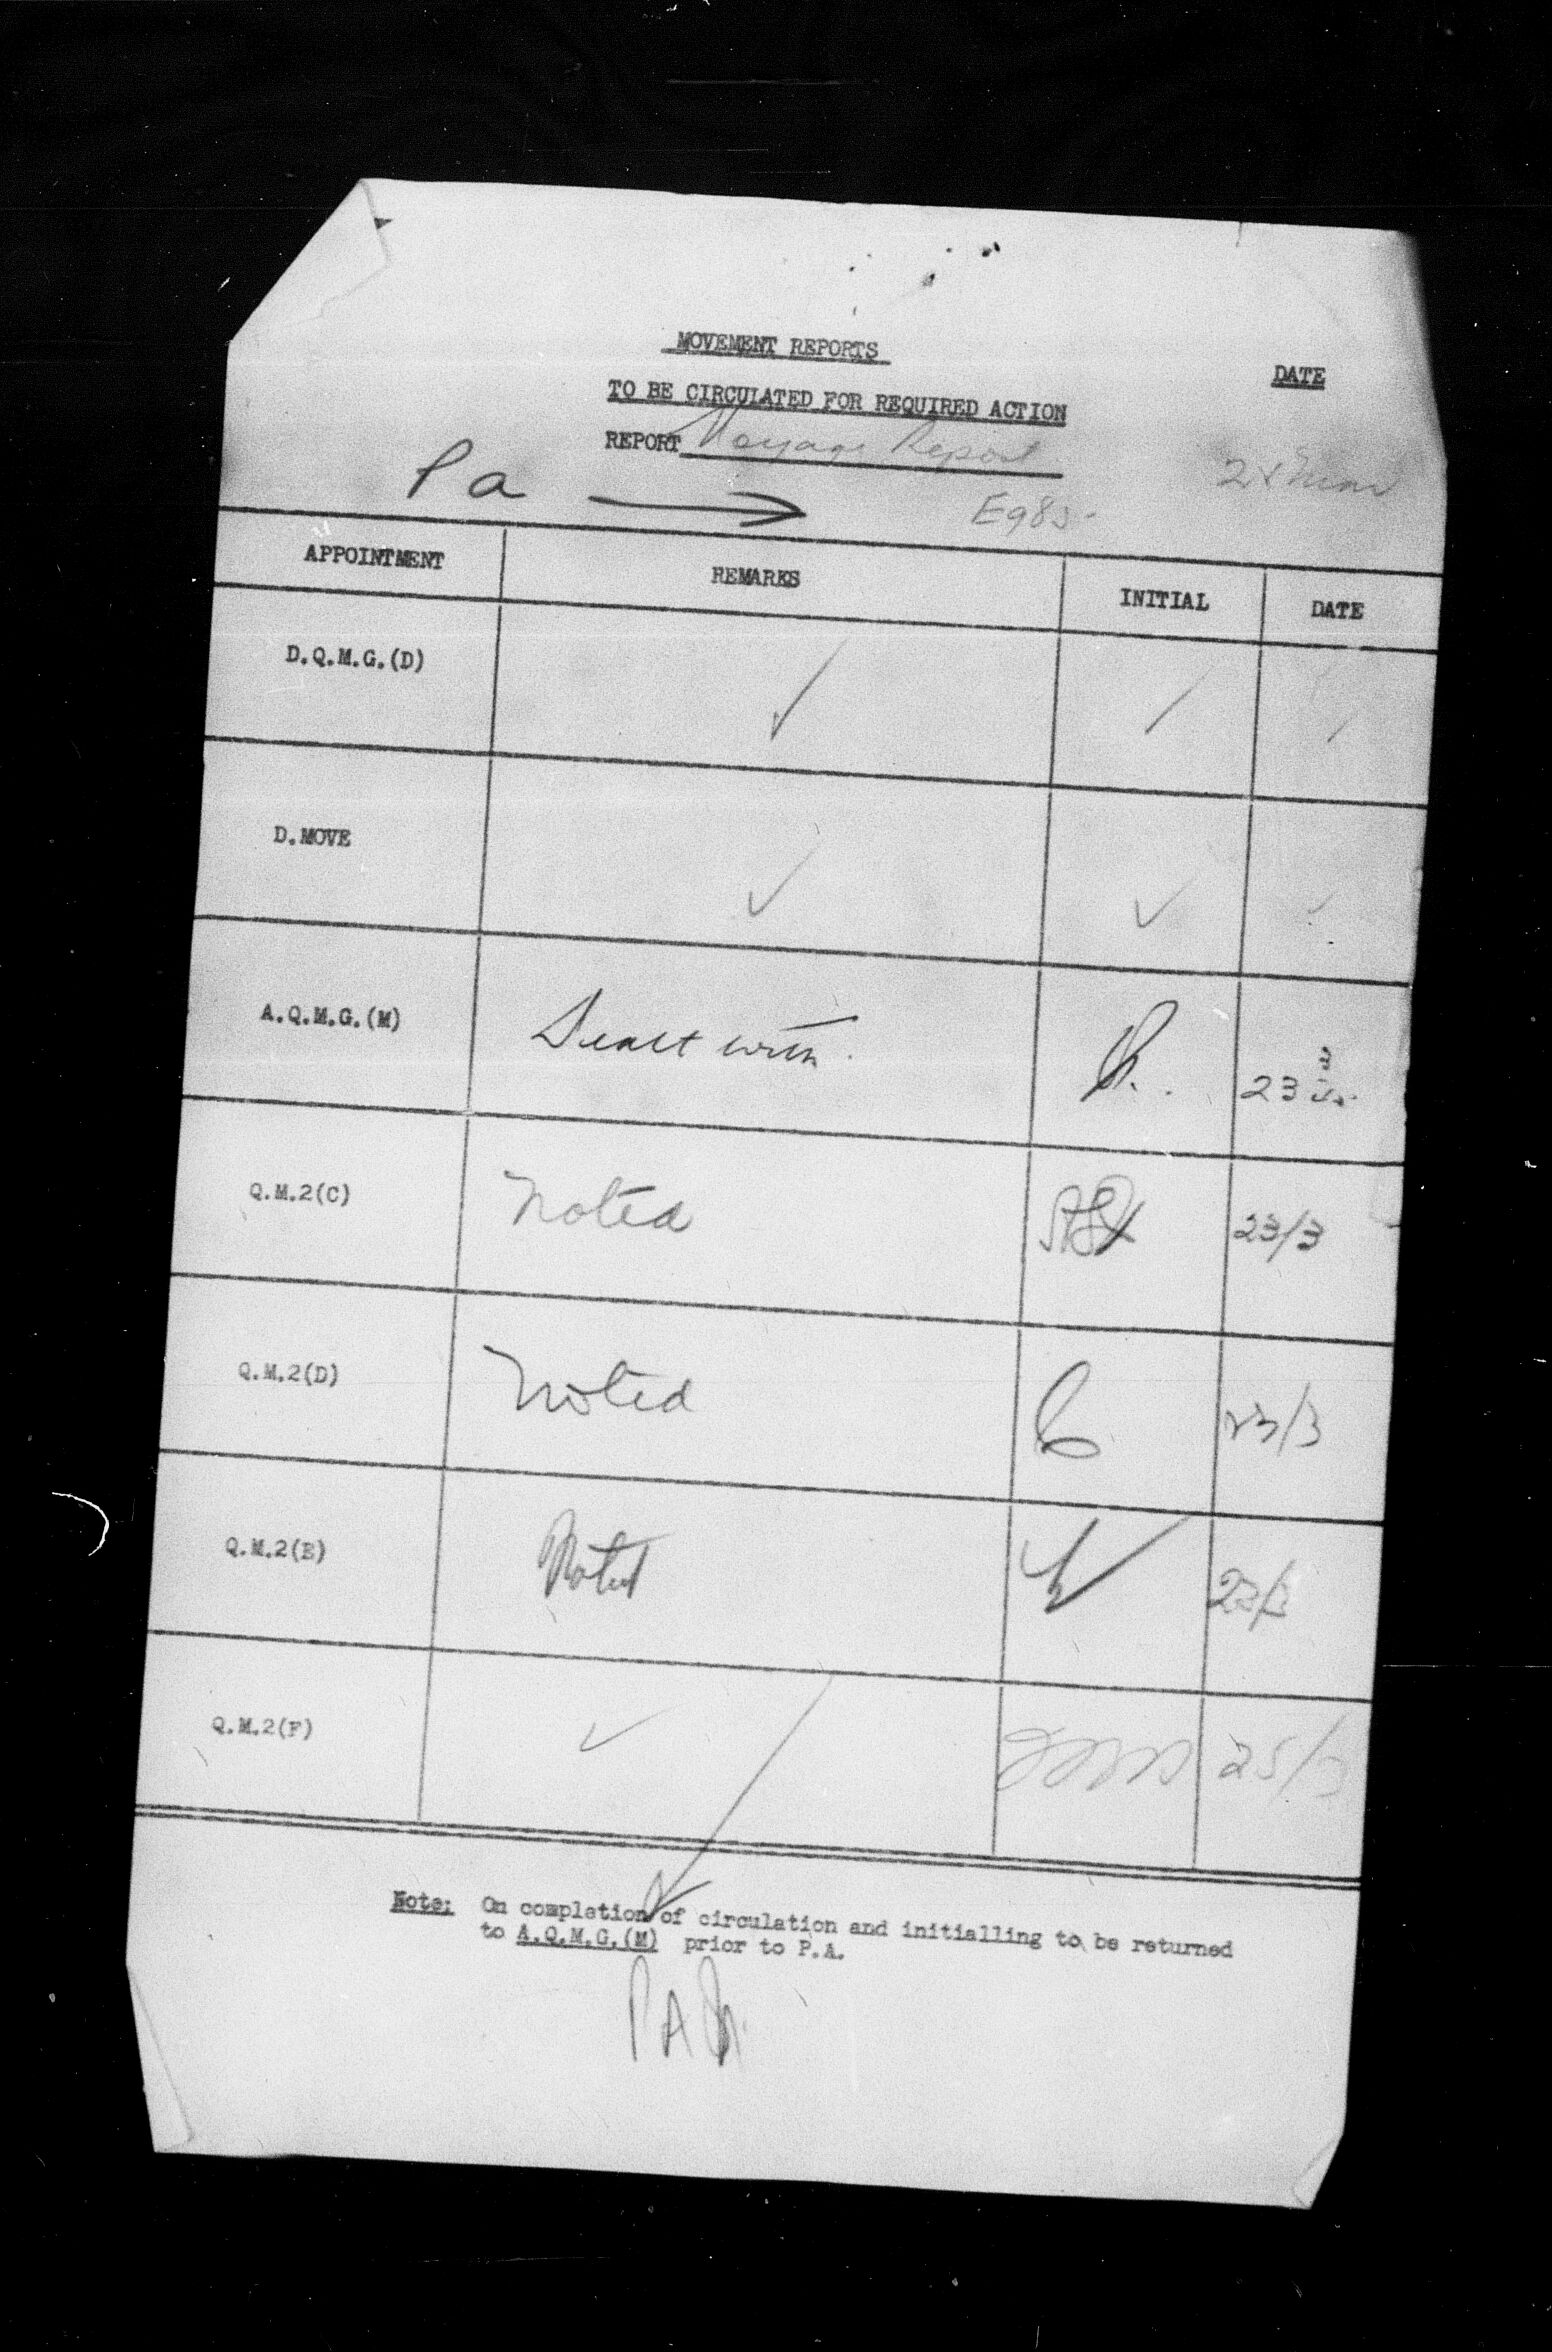 MOVEMENT REPORTS
DATE
TO BE CIRCULATED FOR REQUIRED ACTION
REPORT Voyage Report
Pa
E983-
APPOINTMENT REMARKS INITIAL DATE
D.Q.M.G.(D)
D.MOVE
A.Q.M.G.(M) Dealt with. 23
Q.M.2(C) Noted 23/3
Q.M.2(D) Noted 23/3
Q.M.2(E) Noted 23/3
Q.M.2(F) 25/3
Note: On completion of circulation and initialling to be returned
to A.Q.M.G.(M) prior to P.A.
PA